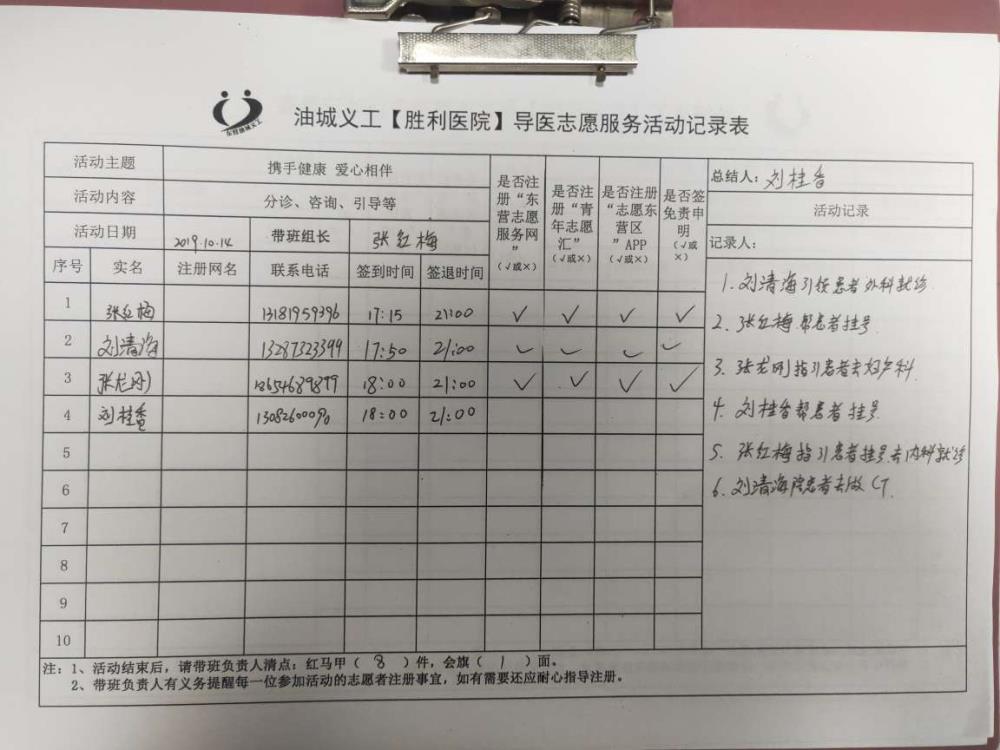 东营油城义工
油城义工【胜利医院】导医志愿服务活动记录表
活动主题 携手健康 爱心相伴
活动内容 分诊、咨询、引导等
活动日期 2019.10.14 带班组长 张红梅
是否注册“东营志愿服务网”(√或×)
是否注册“青年志愿汇”(√或×)
是否注册“志愿东营区”APP(√或×)
是否签免责申明(√或×)
总结人：刘桂香
活动记录
记录人：
序号 实名 注册网名 联系电话 签到时间 签退时间
1 张红梅 13181959396 17:15 21:00 √ √ √ √
2 刘清海 13287323399 17:50 21:00 √ √ √ √
3 张龙刚 18:00 21:00 √ √ √ √
4 刘桂香 13082600090 18:00 21:00
5
6
7
8
9
10
1.刘清海引患者外科就诊
2.张红梅帮患者挂号
3.张龙刚指引患者去妇产科
4.刘桂香帮患者挂号
5.张红梅指引患者挂号去内科就诊
6.刘清海陪患者去做CT
注：1、活动结束后，请带班负责人清点：红马甲（8）件，会旗（1）面。
2、带班负责人有义务提醒每一位参加活动的志愿者注册事宜，如有需要还应耐心指导注册。